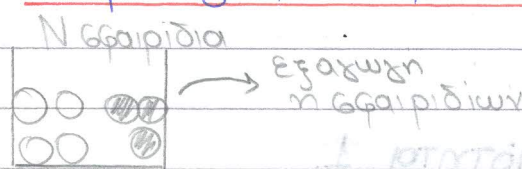 N σφαιρίδια
εξαγωγη
n σφαιριδίων